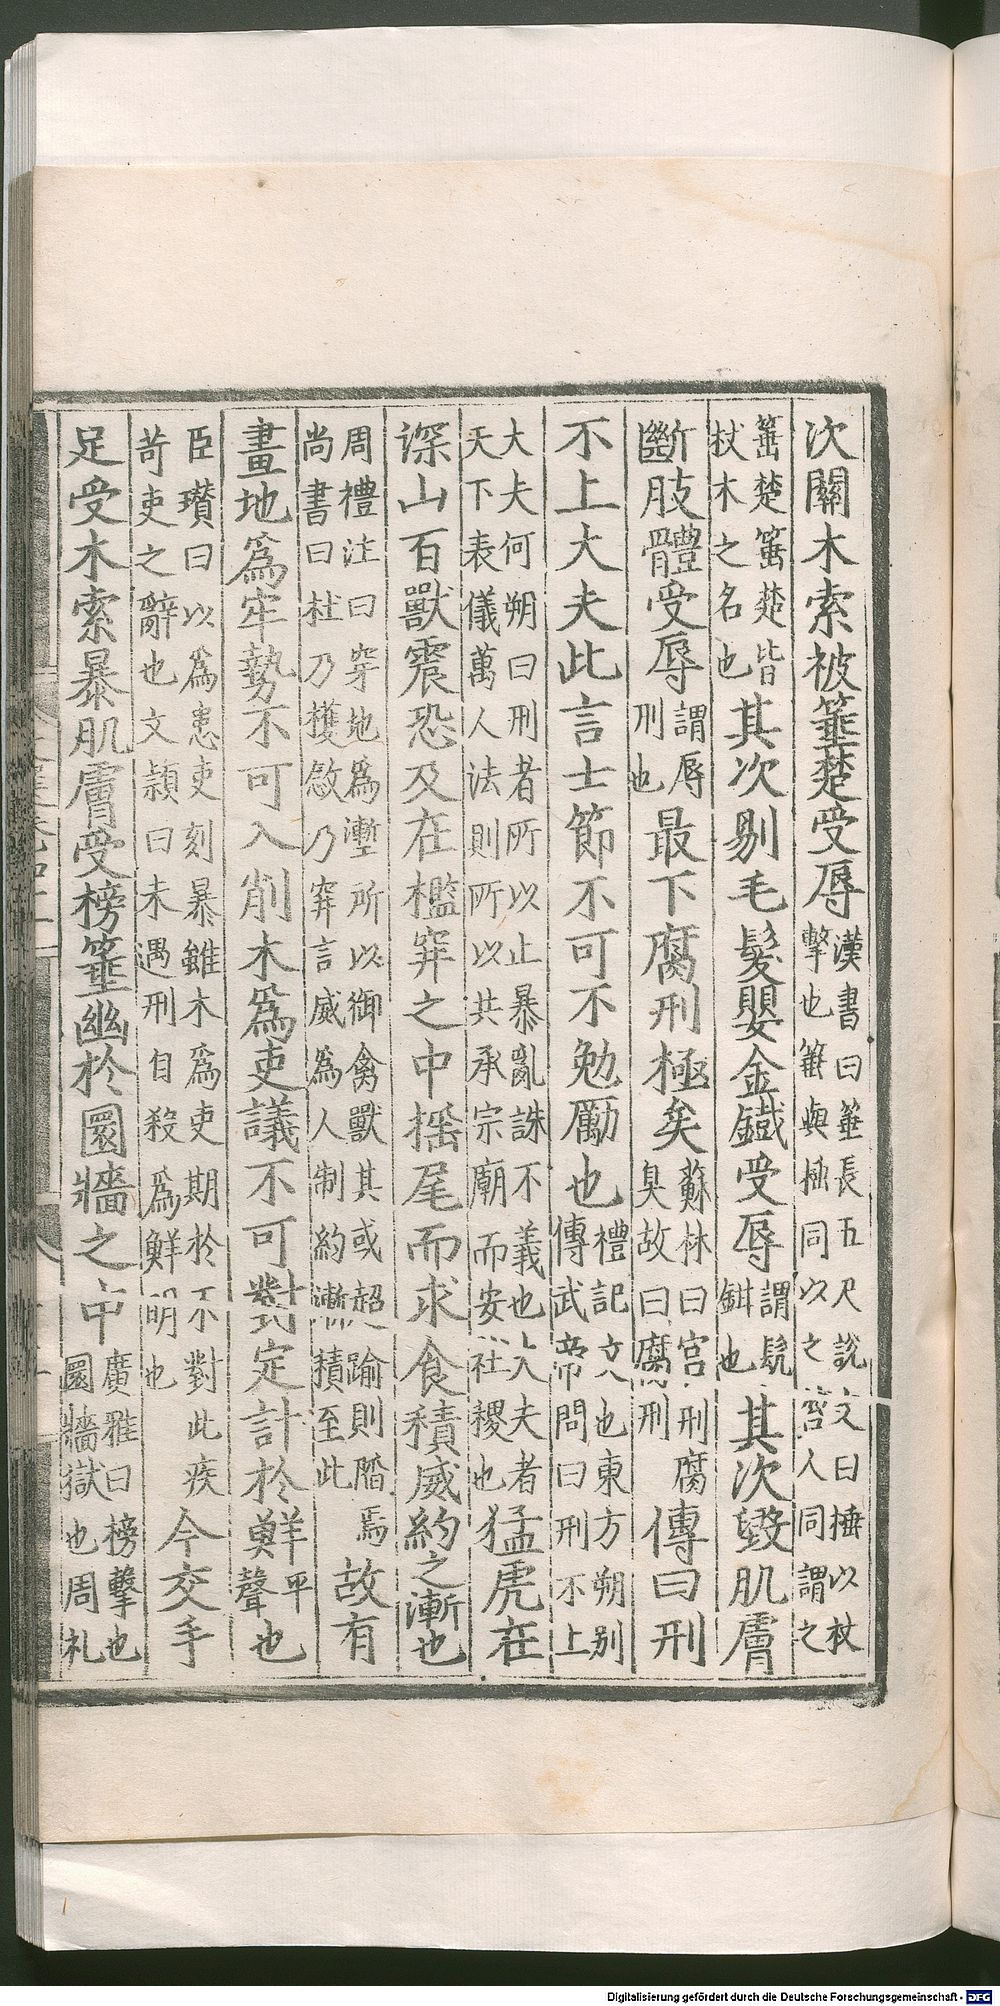 次關木索被箠楚受辱漢書曰箠長五尺說文曰捶以杖擊也箠與捶同以之笞人同謂之
箠楚箠楚皆杖木之名也其次剔毛髮嬰金鐵受辱謂髡鉗也其次毀肌膚
斷肢體受辱謂辱刑也最下腐刑極矣蘇林曰宮刑腐臭故曰腐刑傳曰刑
不上大夫此言士節不可不勉勵也禮記文也東方朔別傳武帝問曰刑不上
大夫何朔曰刑者所以止暴亂誅不義也大夫者天下表儀萬人法則所以共承宗廟而安社稷也猛虎在
深山百獸震恐及在檻穽之中搖尾而求食積威約之漸也
周禮注曰穿地為壍所以御禽獸其或超踰則陷焉尚書曰杜乃擭斂乃穽言威為人制約漸積至此故有
畫地為牢勢不可入削木為吏議不可對定計於鮮也聲平
臣瓚曰以為患吏刻暴雖木為吏期於不對此疾苛吏之辭也文潁曰未遇刑自殺為鮮明也今交手
足受木索暴肌膚受榜箠幽於圜牆之中廣雅曰榜擊也圜牆獄也周礼
Digitalisierung gefördert durch die Deutsche Forschungsgemeinschaft - DFG